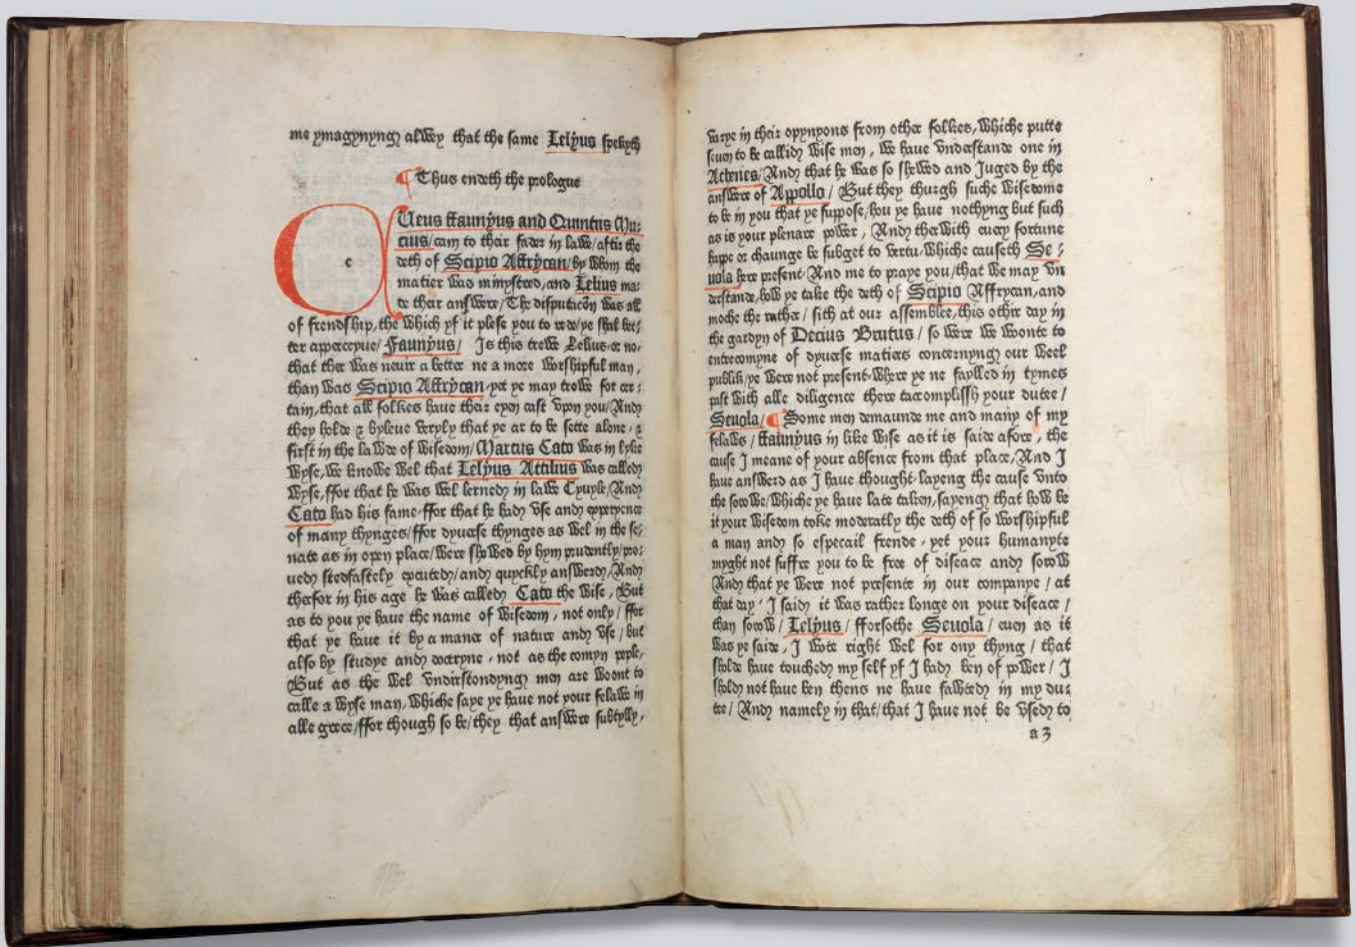 me ymagynyng alwey that the same Lelyus spekyth
¶ Thus endeth the prologue
c
Neus ffaunyus and Quintus Mu-
cius/cam to their fader in lawe/aftir the
deth of Scipio Affrycan/by whom the
matier was mynystred, and Lelius ma-
de their answere/The disputacõn was all
of frendship, the which yf it plese you to rede/ye shal bet-
ter apperceyue/ Faunyus/ Is this trewe Lelius or no,
that ther was neuir a better ne a more worshipful man,
than was Scipio Affrycan yet ye may trowe for cer-
tain, that all folkes haue their eyen cast vpon you/And
they holde & byleue veryly that ye ar to be sette alone, &
first in the lawe of wisedom/Marcus Cato was in lyke
wyse, we knowe wel that Lelyus Attilius was called
wyse, ffor that he was wel lerned in lawe Cyuyle/And
Cato had his fame ffor that he had vse and experyence
of many thynges/ffor dyuerse thynges as wel in the se-
nate as in open place/were shewed by hym prudently/pro-
ued stedfastely excuted/and quyckly answerd/And
therfor in his age he was called Cato the wise, But
as to you ye haue the name of wisedom, not only/ffor
that ye haue it by a maner of nature and vse/but
also by studye and doctryne, not as the comyn peple,
But as the wel vndirstondyng men are woont to
calle a wyse man, whiche saye ye haue not your felawe in
alle grece/ffor though so be/they that answere subtylly,
varye in their opynyons from other folkes, whiche putte
seuen to be callid wise men, we haue vnderstande one in
Athenes/And that he was so shewed and Juged by the
answere of Appollo/ But they thurgh suche wisedome
to be in you that ye suppose/hou ye haue nothyng but such
as is your plenare power, And therwith euery fortune
happe or chaunge be subget to vertu/whiche causeth Se-
uola here present/And me to praye you/that we may vn
derstande, how ye take the deth of Scipio Affrycan, and
moche the rather/ sith at our assemblee, this othir day in
the gardyn of Decius Brutus/ so were we wonte to
entrecomyne of dyuerse matiers concernyng our weel
publik/ye were not present Where ye ne faylled in tymes
past with alle diligence there taccomplissh your dutee/
Sceuola/¶ Some men demaunde me and many of my
felaws/ ffaunyus in like wise as it is saide afore, the
cause I meane of your absence from that place, And I
haue answerd as I haue thought layeng the cause vnto
the sorowe/whiche ye haue late taken, sayeng that how be
it your wisedom toke moderatly the deth of so worshipful
a man and so especail frende, yet your humanyte
myght not suffre you to be free of diseace and sorow
And that ye were not presente in our companye/ at
that day, I said it was rather longe on your diseace/
than sorow/ Lelyus/ fforsothe Sceuola/ euen as it
was ye saide, I wote right wel for ony thyng/ that
sholde haue touched my self yf I had ben of power/ I
shold not haue ben thens ne haue fawted in my du-
tee/ And namely in that/that I haue not be vsed to
a3